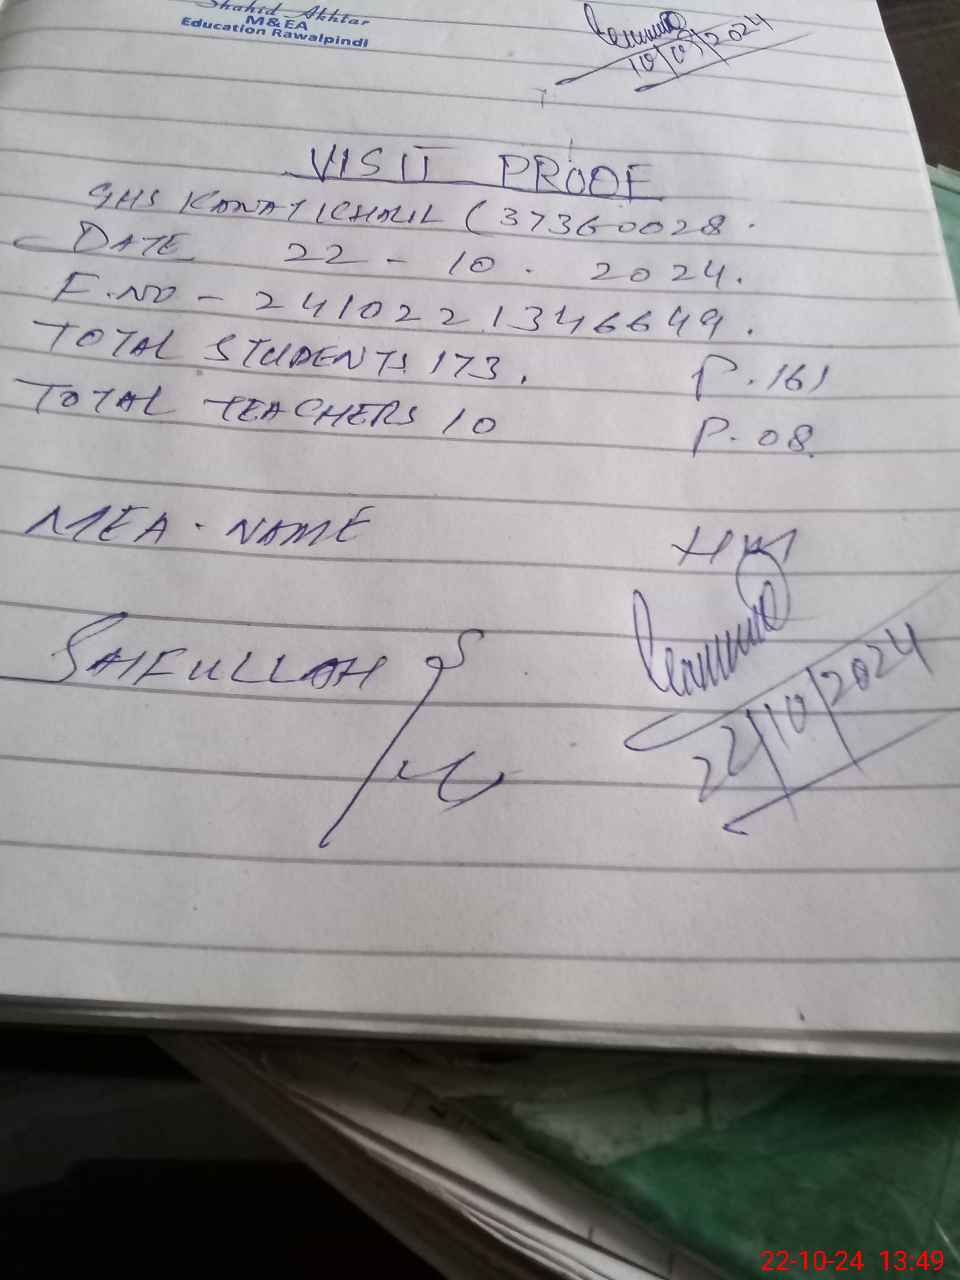 Shahid Akhtar
M&EA
Education Rawalpindi
2024
VISIT PROOF
GHS KANATICHALIL (37360028.
DATE 22 - 10 . 2024.
F.NO - 2410221346649.
TOTAL STUDENTS 173. P. 161
TOTAL TEACHERS 10 P. 08.
MEA . NAME
HM
SAIFULLAH
22/10/2024
22-10-24 13:49